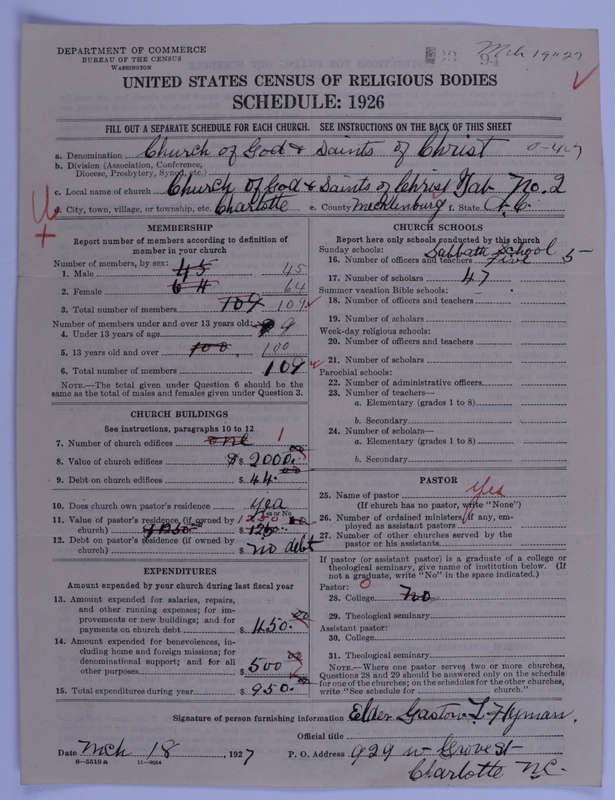 DEPARTMENT OF COMMERCE
BUREAU OF THE CENSUS
WASHINGTON
94
Mch 19"27
UNITED STATES CENSUS OF RELIGIOUS BODIES
SCHEDULE: 1926
FILL OUT A SEPARATE SCHEDULE FOR EACH CHURCH. SEE INSTRUCTIONS ON THE BACK OF THIS SHEET
a. Denomination Church of God & Saints of Christ 0-4-7
b. Division (Association, Conference, Diocese, Presbytery, Synod, etc.)
c. Local name of church Church of God & Saints of Christ Tab No. 2
d. City, town, village, or township, etc. Charlotte e. County Mecklenburg f. State N.C.
MEMBERSHIP
Report number of members according to definition of
member in your church
Number of members, by sex:
1. Male 45 45
2. Female 64 64
3. Total number of members 109 109
Number of members under and over 13 years old:
4. Under 13 years of age 9 9
5. 13 years old and over 100 100
6. Total number of members 109
NOTE.—The total given under Question 6 should be the
same as the total of males and females given under Question 3.
CHURCH BUILDINGS
See instructions, paragraphs 10 to 12
7. Number of church edifices one 1
8. Value of church edifices $ 2000.00
9. Debt on church edifices $ 44.00
10. Does church own pastor's residence yea
Yes or No
11. Value of pastor's residence (if owned by
church) $1250 1250
12. Debt on pastor's residence (if owned by
church) $ no debt
EXPENDITURES
Amount expended by your church during last fiscal year
13. Amount expended for salaries, repairs,
and other running expenses; for im-
provements or new buildings; and for
payments on church debt $ 450.00
14. Amount expended for benevolences, in-
cluding home and foreign missions; for
denominational support; and for all
other purposes $ 500 00
15. Total expenditures during year $ 950.00
CHURCH SCHOOLS
Report here only schools conducted by this church
Sunday schools: Sabbath School
16. Number of officers and teachers five 5
17. Number of scholars 47
Summer vacation Bible schools:
18. Number of officers and teachers
19. Number of scholars
Week-day religious schools:
20. Number of officers and teachers
21. Number of scholars
Parochial schools:
22. Number of administrative officers
23. Number of teachers—
a. Elementary (grades 1 to 8)
b. Secondary
24. Number of scholars—
a. Elementary (grades 1 to 8)
b. Secondary
PASTOR
25. Name of pastor Yes
(If church has no pastor, write "None")
26. Number of ordained ministers, if any, em-
ployed as assistant pastors
27. Number of other churches served by the
pastor or his assistants
If pastor (or assistant pastor) is a graduate of a college or
theological seminary, give name of institution below. (If
not a graduate, write "No" in the space indicated.)
Pastor: 0
28. College No
29. Theological seminary
Assistant pastor:
30. College
31. Theological seminary
NOTE.—Where one pastor serves two or more churches,
Questions 28 and 29 should be answered only on the schedule
for one of the churches; on the schedules for the other churches,
write "See schedule for church."
Signature of person furnishing information Elder Gaston L. Hyman.
Official title
Date Mch 18, 1927 P. O. Address 929 W Grove St
8—5518a 11—9054 Charlotte N.C.